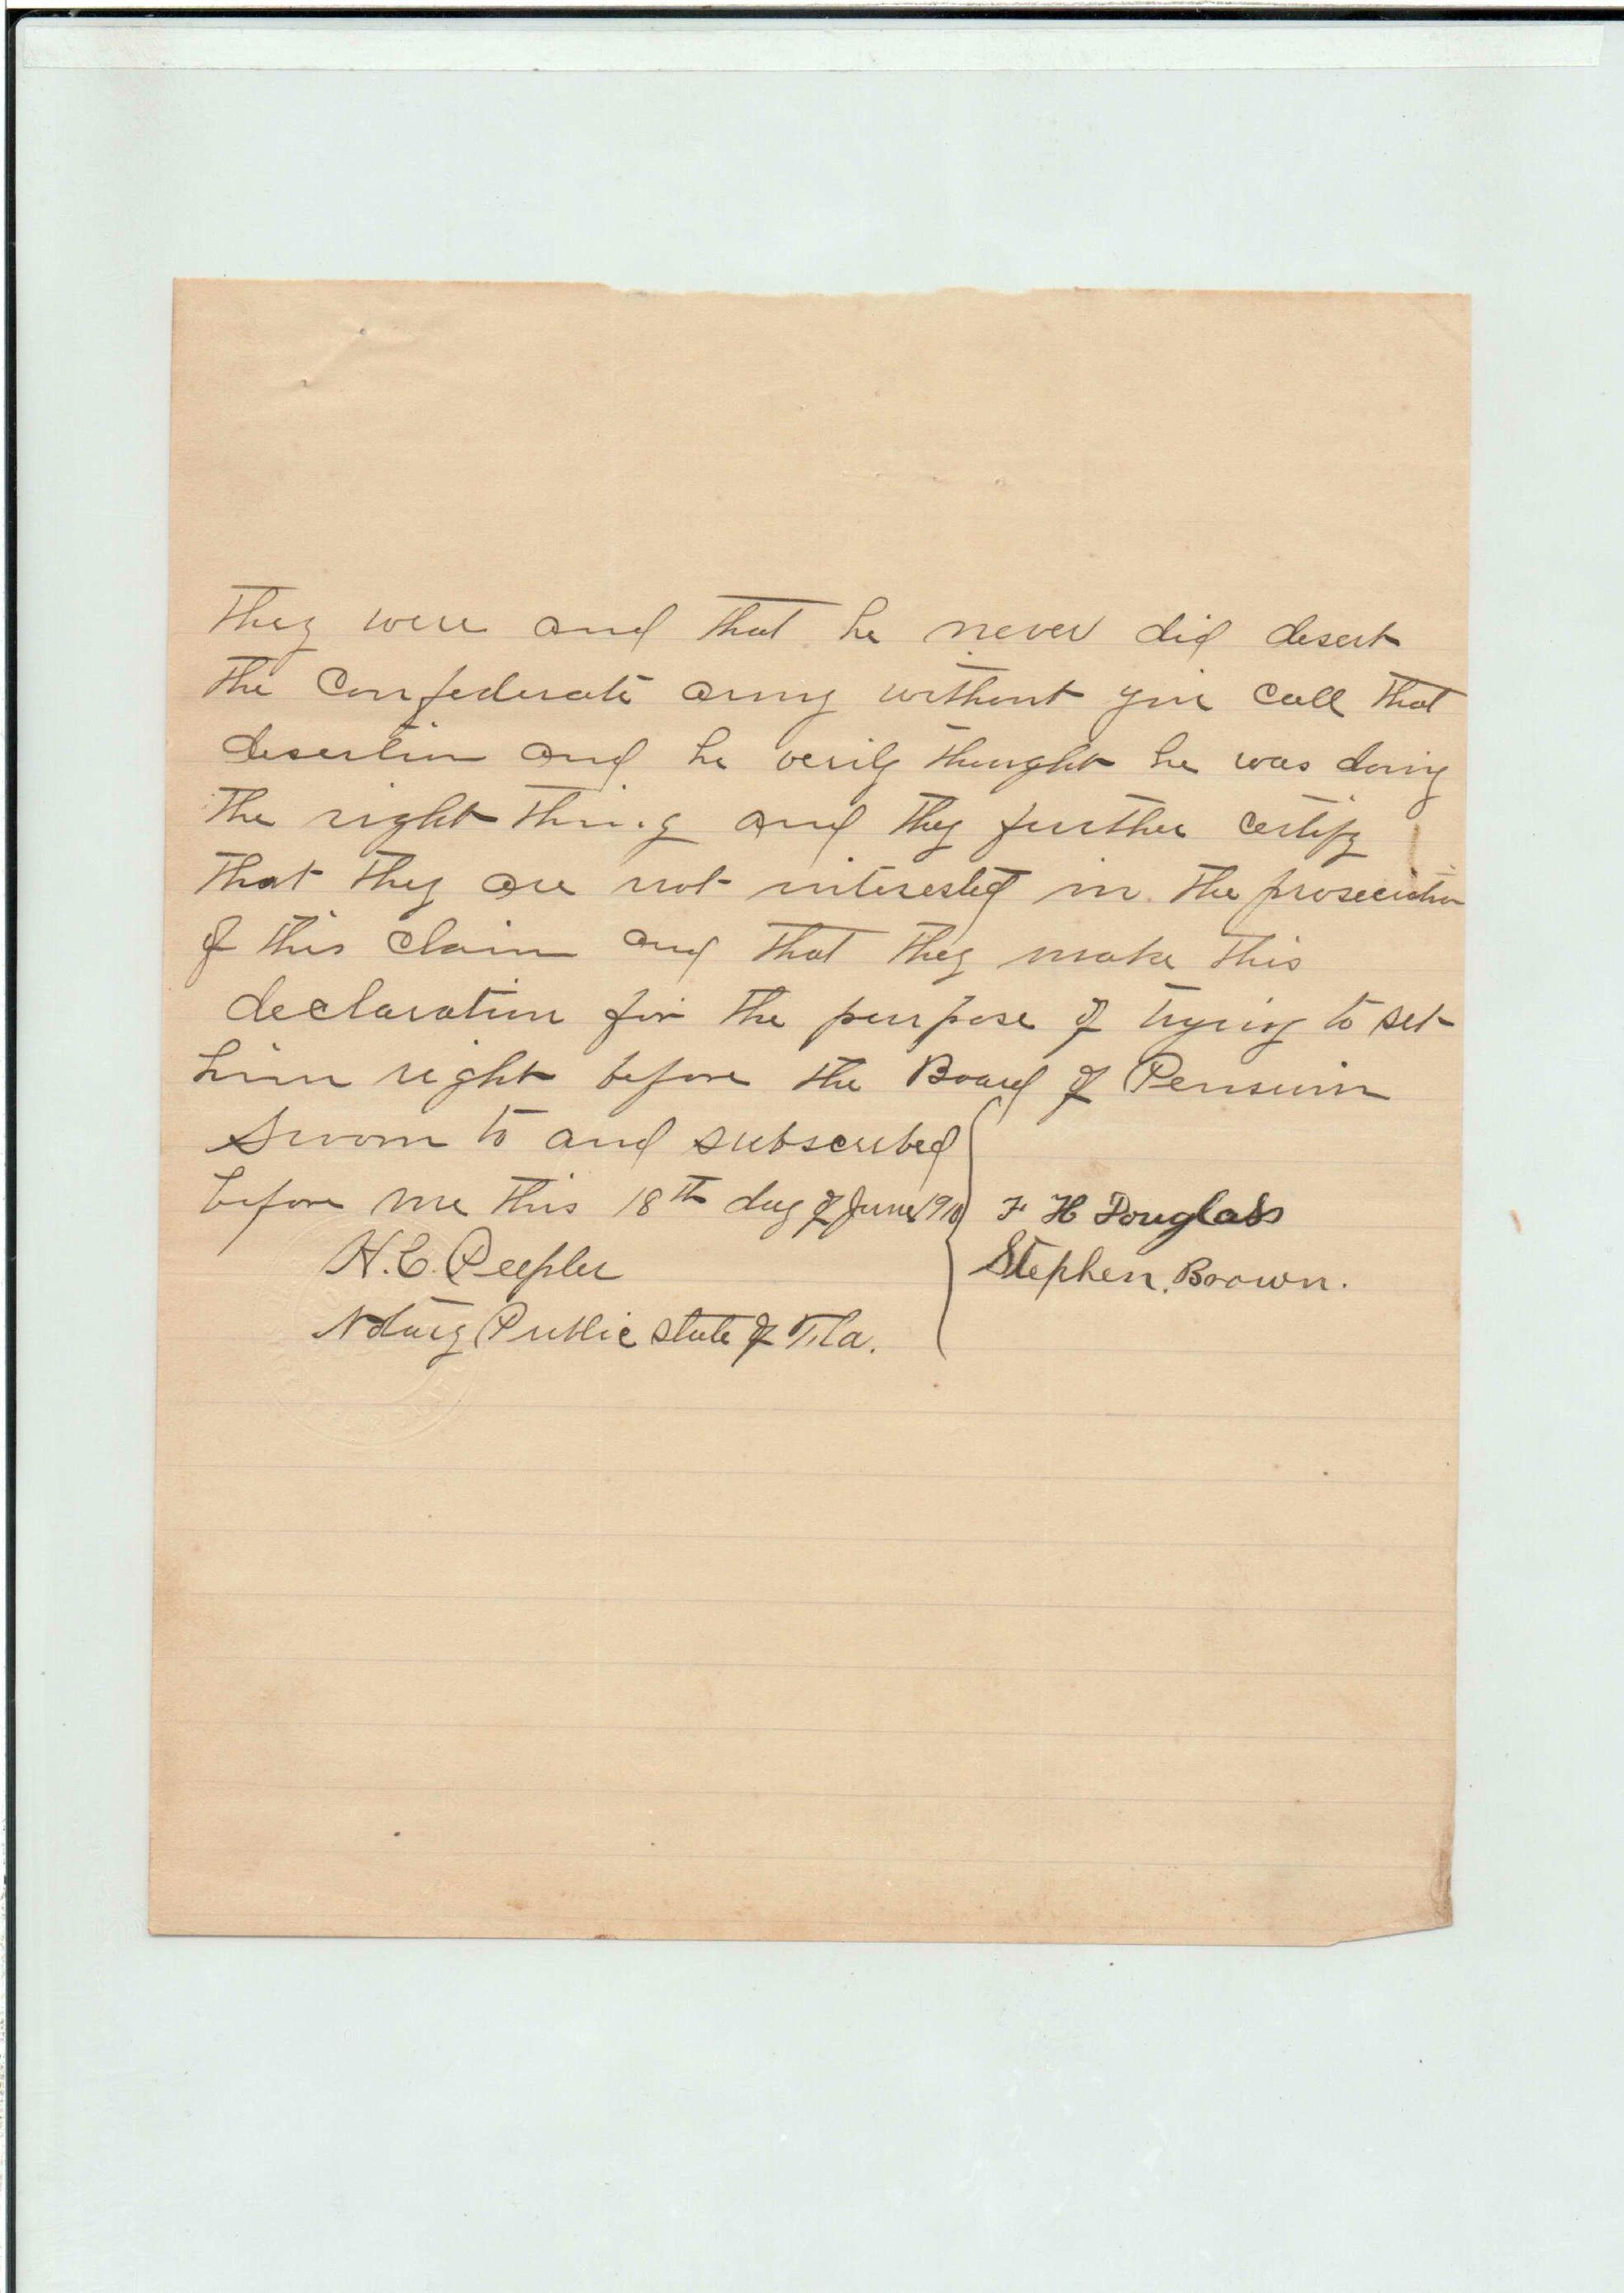 They were and that he never did desert
the Confederate army without you call that
desertion and he verily thought he was doing
the right thing and they further certify
that they are not interested in the prosecution
of this claim and that they make this
declaration for the purpose of trying to set
him right before the Board of Pension
Sworn to and subscribed
before me this 18th day of June 1910
F H Douglass
H. C. Peeples
Stephen. Brown.
Notary Public State of Fla.